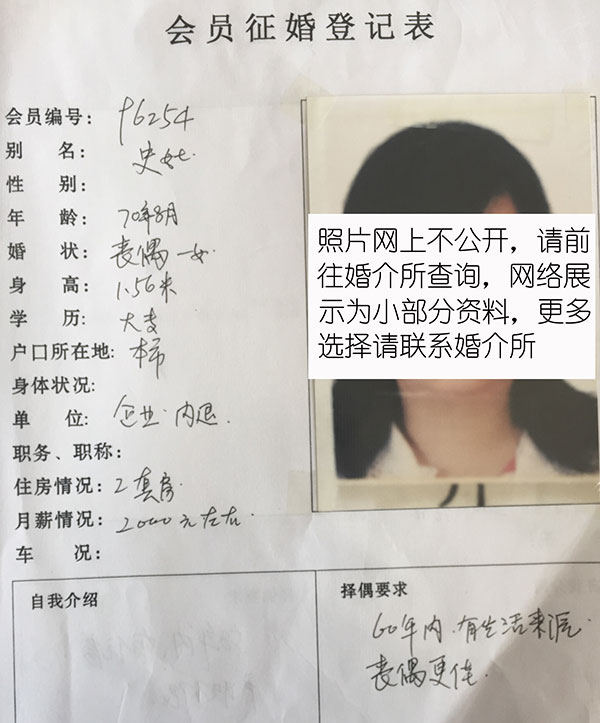 会员征婚登记表
会员编号： 96254
别 名： 史女
性 别：
年 龄： 70年8月
婚 状： 丧偶 一女
身 高： 1.56米
学 历： 大专
户口所在地： 本市
身体状况：
单 位： 企业 内退.
职务、职称：
住房情况： 2套房
月薪情况： 2000元左右
车 况：
照片网上不公开，请前
往婚介所查询，网络展
示为小部分资料，更多
选择请联系婚介所
自我介绍
择偶要求
60年内.有生活来源
丧偶更佳.